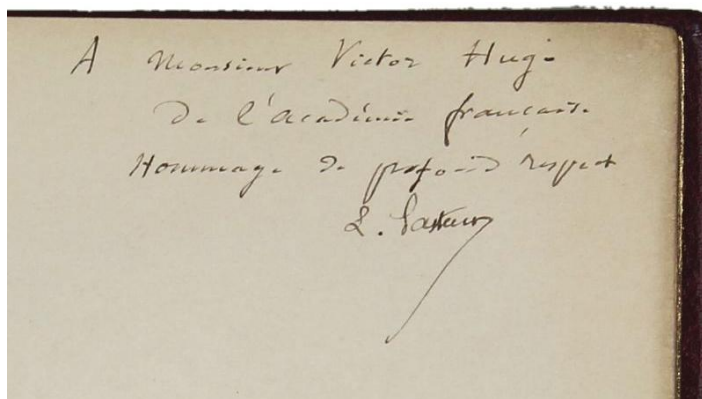 A Monsieur Victor Hugo
De l'Académie française
Hommage de profond respect
L. Pasteur